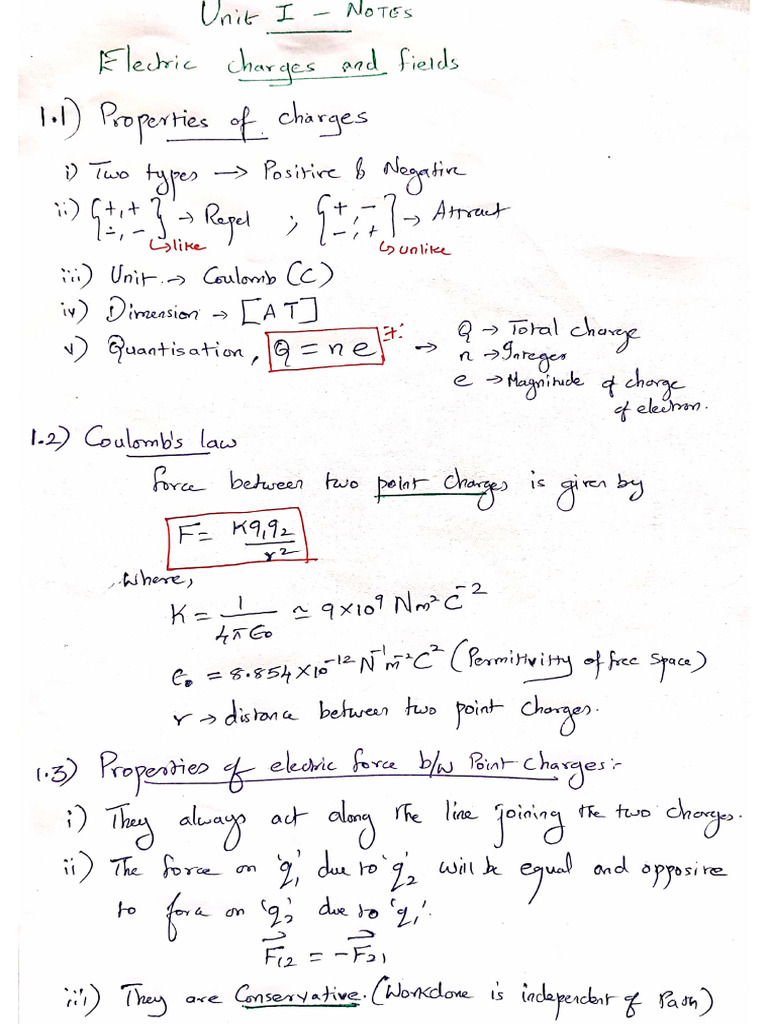 Unit I - NOTES
Electric charges and fields
1.1) Properties of charges
i) Two types → Positive & Negative
ii) {+,+ -,-} → Repel ; {+,- -,+} → Attract
↳like ↳unlike
iii) Unit → Coulomb (C)
iv) Dimension → [AT]
v) Quantisation, Q = ne → Q → Total charge
n → Integer
e → Magnitude of charge
of electron.
1.2) Coulomb's law
Force between two point charges is given by
F = Kq₁q₂/r²
where,
K = 1/4πϵ₀ ≃ 9×10⁹ Nm²C⁻²
ϵ₀ = 8.854×10⁻¹² N⁻¹m⁻²C² (Permitivitty of free space)
r → distance between two point charges.
1.3) Properties of electric force b/w Point charges:-
i) They always act along the line joining the two charges.
ii) The force on 'q₁' due to 'q₂' will be equal and opposive
to force on 'q₂' due to 'q₁'.
F⃗₁₂ = -F⃗₂₁
iii) They are Conservative. (Workdone is independent of Path)